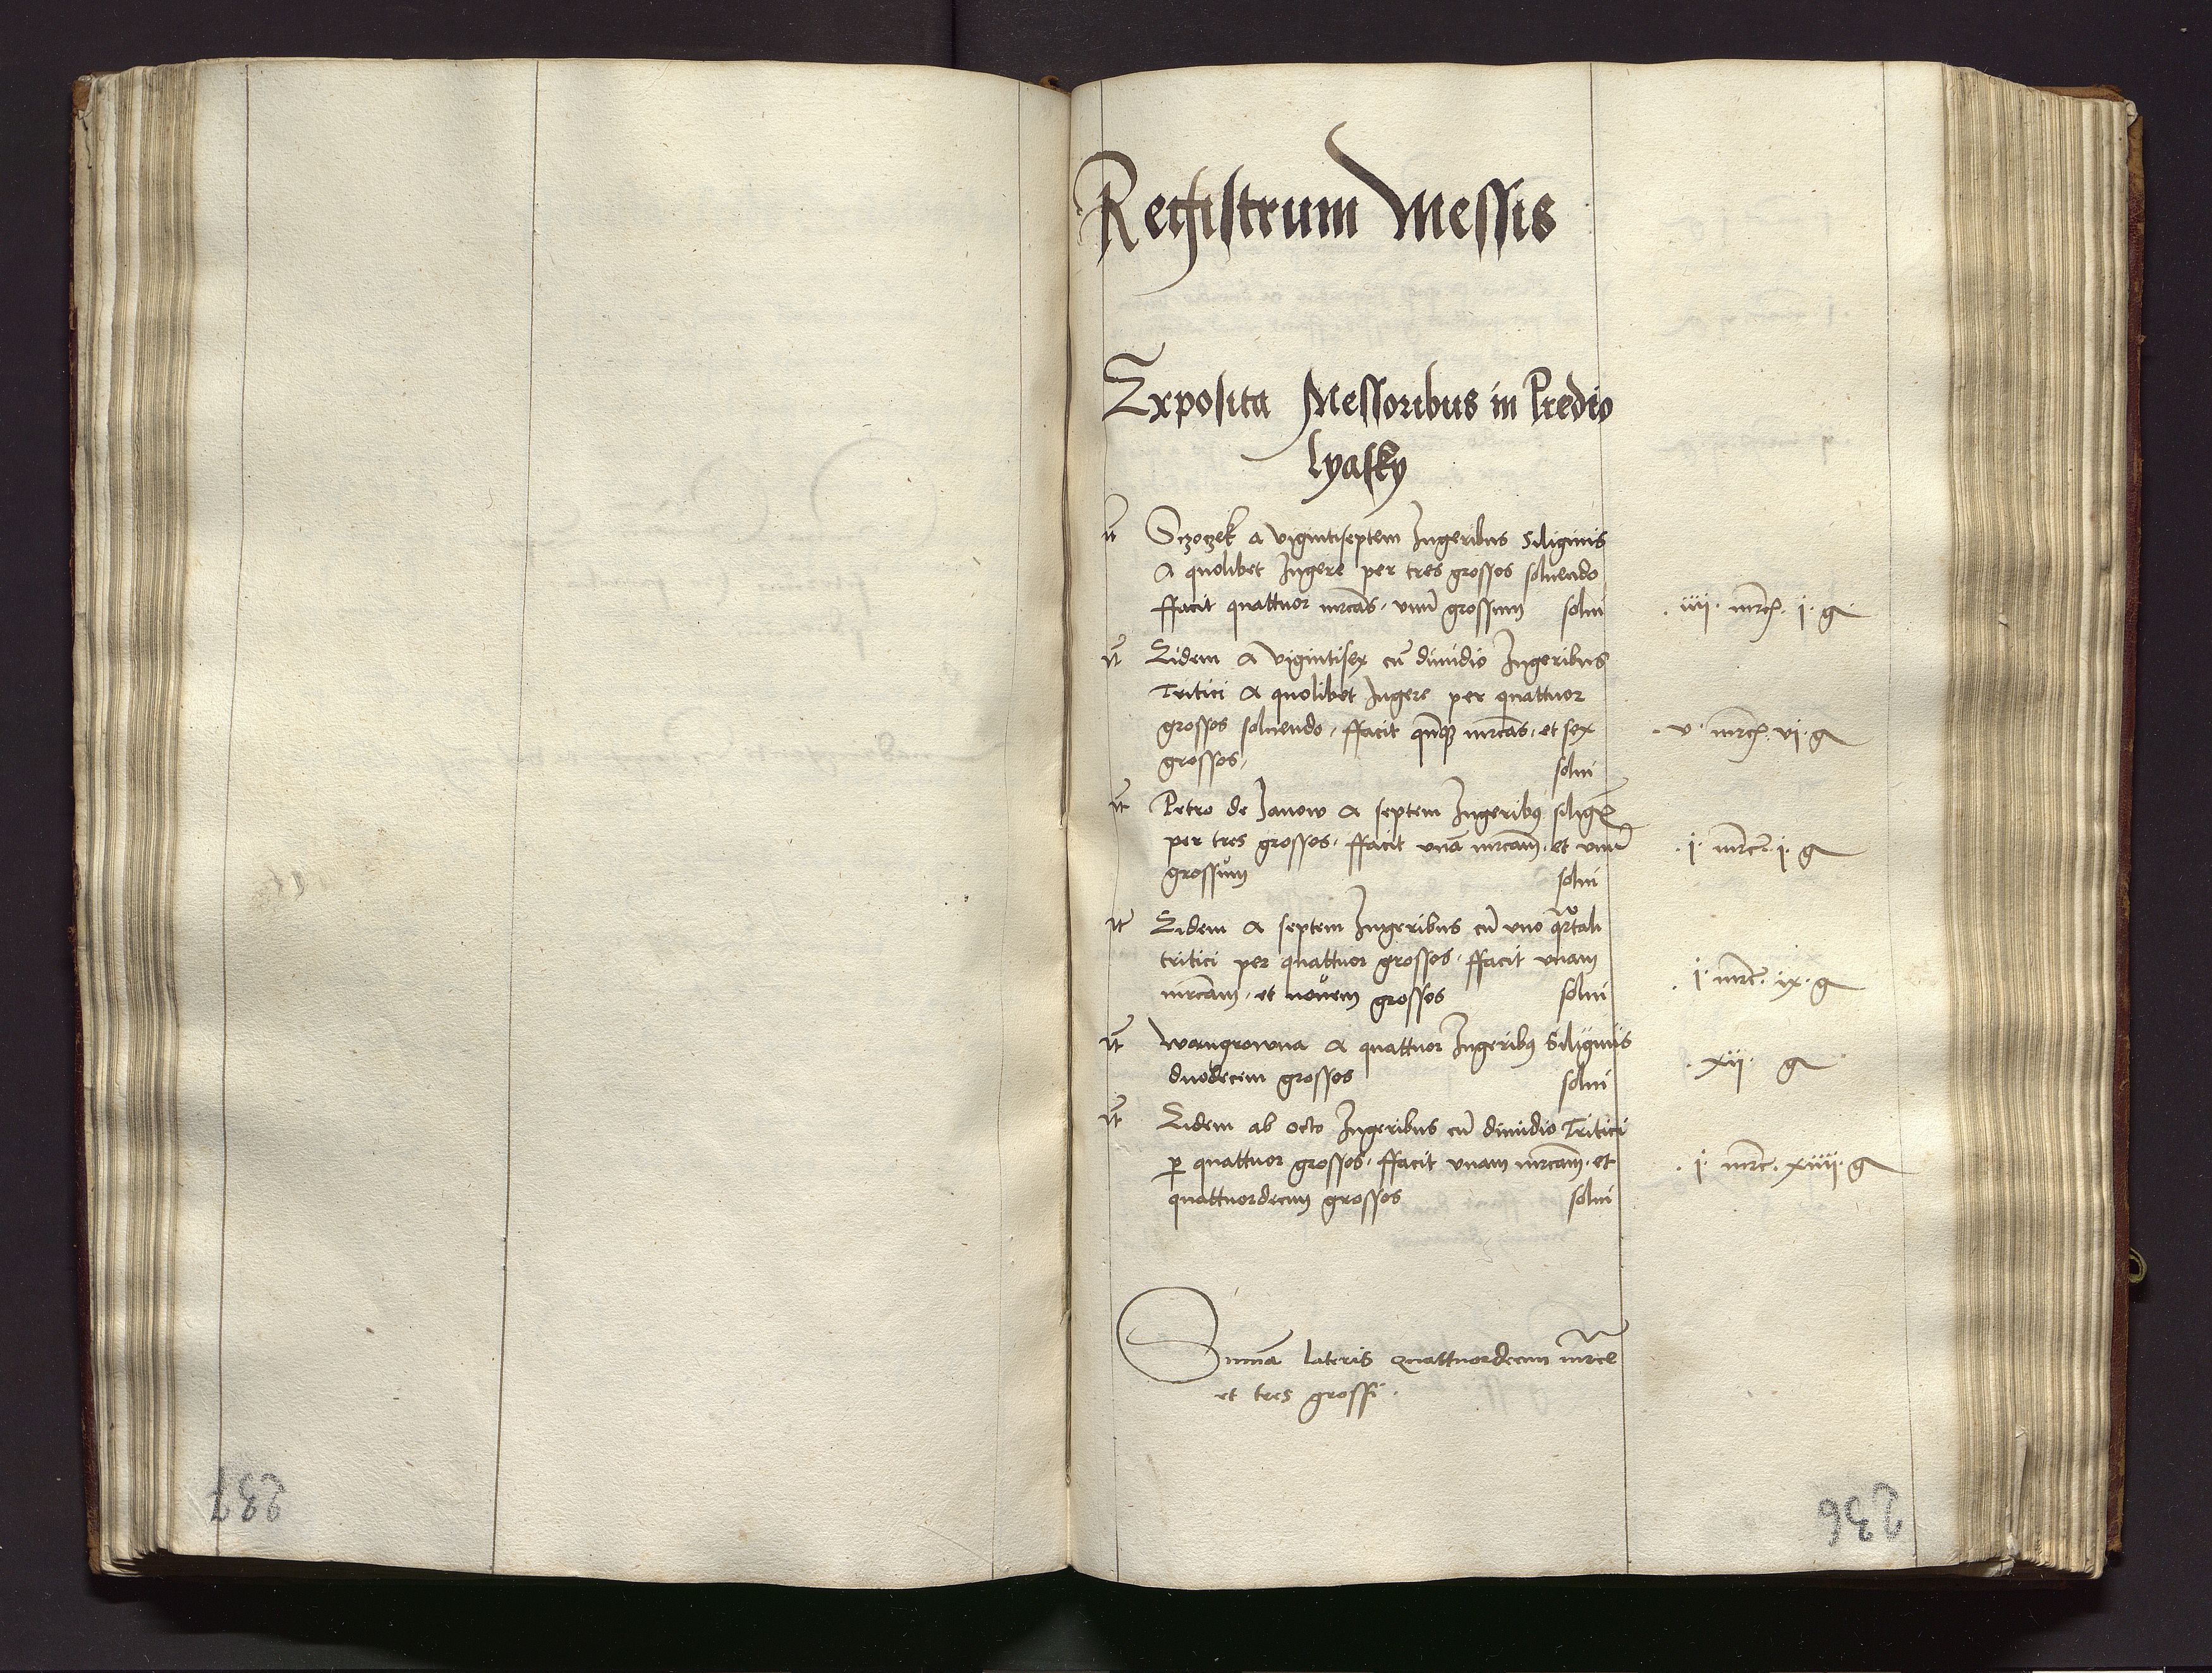 Registrum Messis
Exposita Messoribus in Predio
Lyasky
It Sczoczek a vigintiseptem Jugeribus Siliginis
A quolibet Jugere per tres grossos soluendo
ffacit quattuor mrcas. vnū grossum solui .iiii. mrc. i. g
It Eidem a vigintisex cū dimidio Jugeribus
Tritici a quolibet Jugere per quattuor
grossos soluendo, ffacit quinq mrcas. et sex .v. mrc. vi. g
grossos, solui
It Petro de Janow a septem Jugeribus silig
per tres grossos. ffacit vnā mrcam. et vnū .i. mrc. i. g
grossum solui
It Eidem a septem Jugeribus cū vno qrtali
tritici per quattuor grossos. ffacit vnam .i. mrc. ix. g
mrcam. et nouem grossos solui
It Wangrowna a quattuor Jugeribus Siliginis
duodecim grossos solui .xii. g
It Eidem ab octo Jugeribus cū dimidio Tritici
p quattuor grossos. ffacit vnam mrcam. et .i. mrc. xiiii. g
quattuordecim grossos solui
Summa lateris quattuordecim mrce
et tres grossi.
237
236